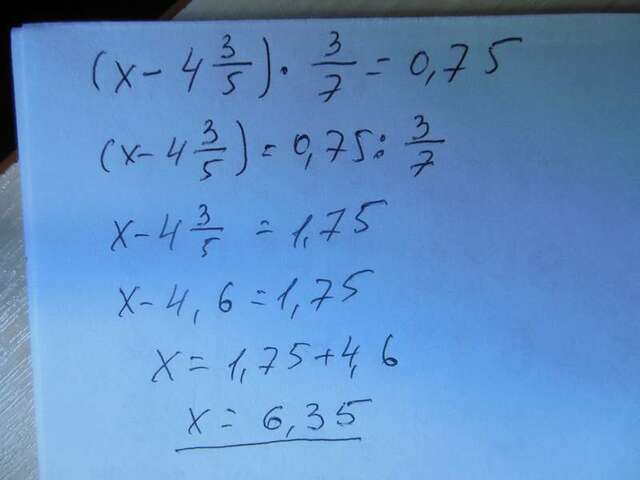 (x - 4 3/5) · 3/7 = 0,75
(x - 4 3/5) = 0,75 : 3/7
x - 4 3/5 = 1,75
x - 4,6 = 1,75
x = 1,75 + 4,6
x = 6,35